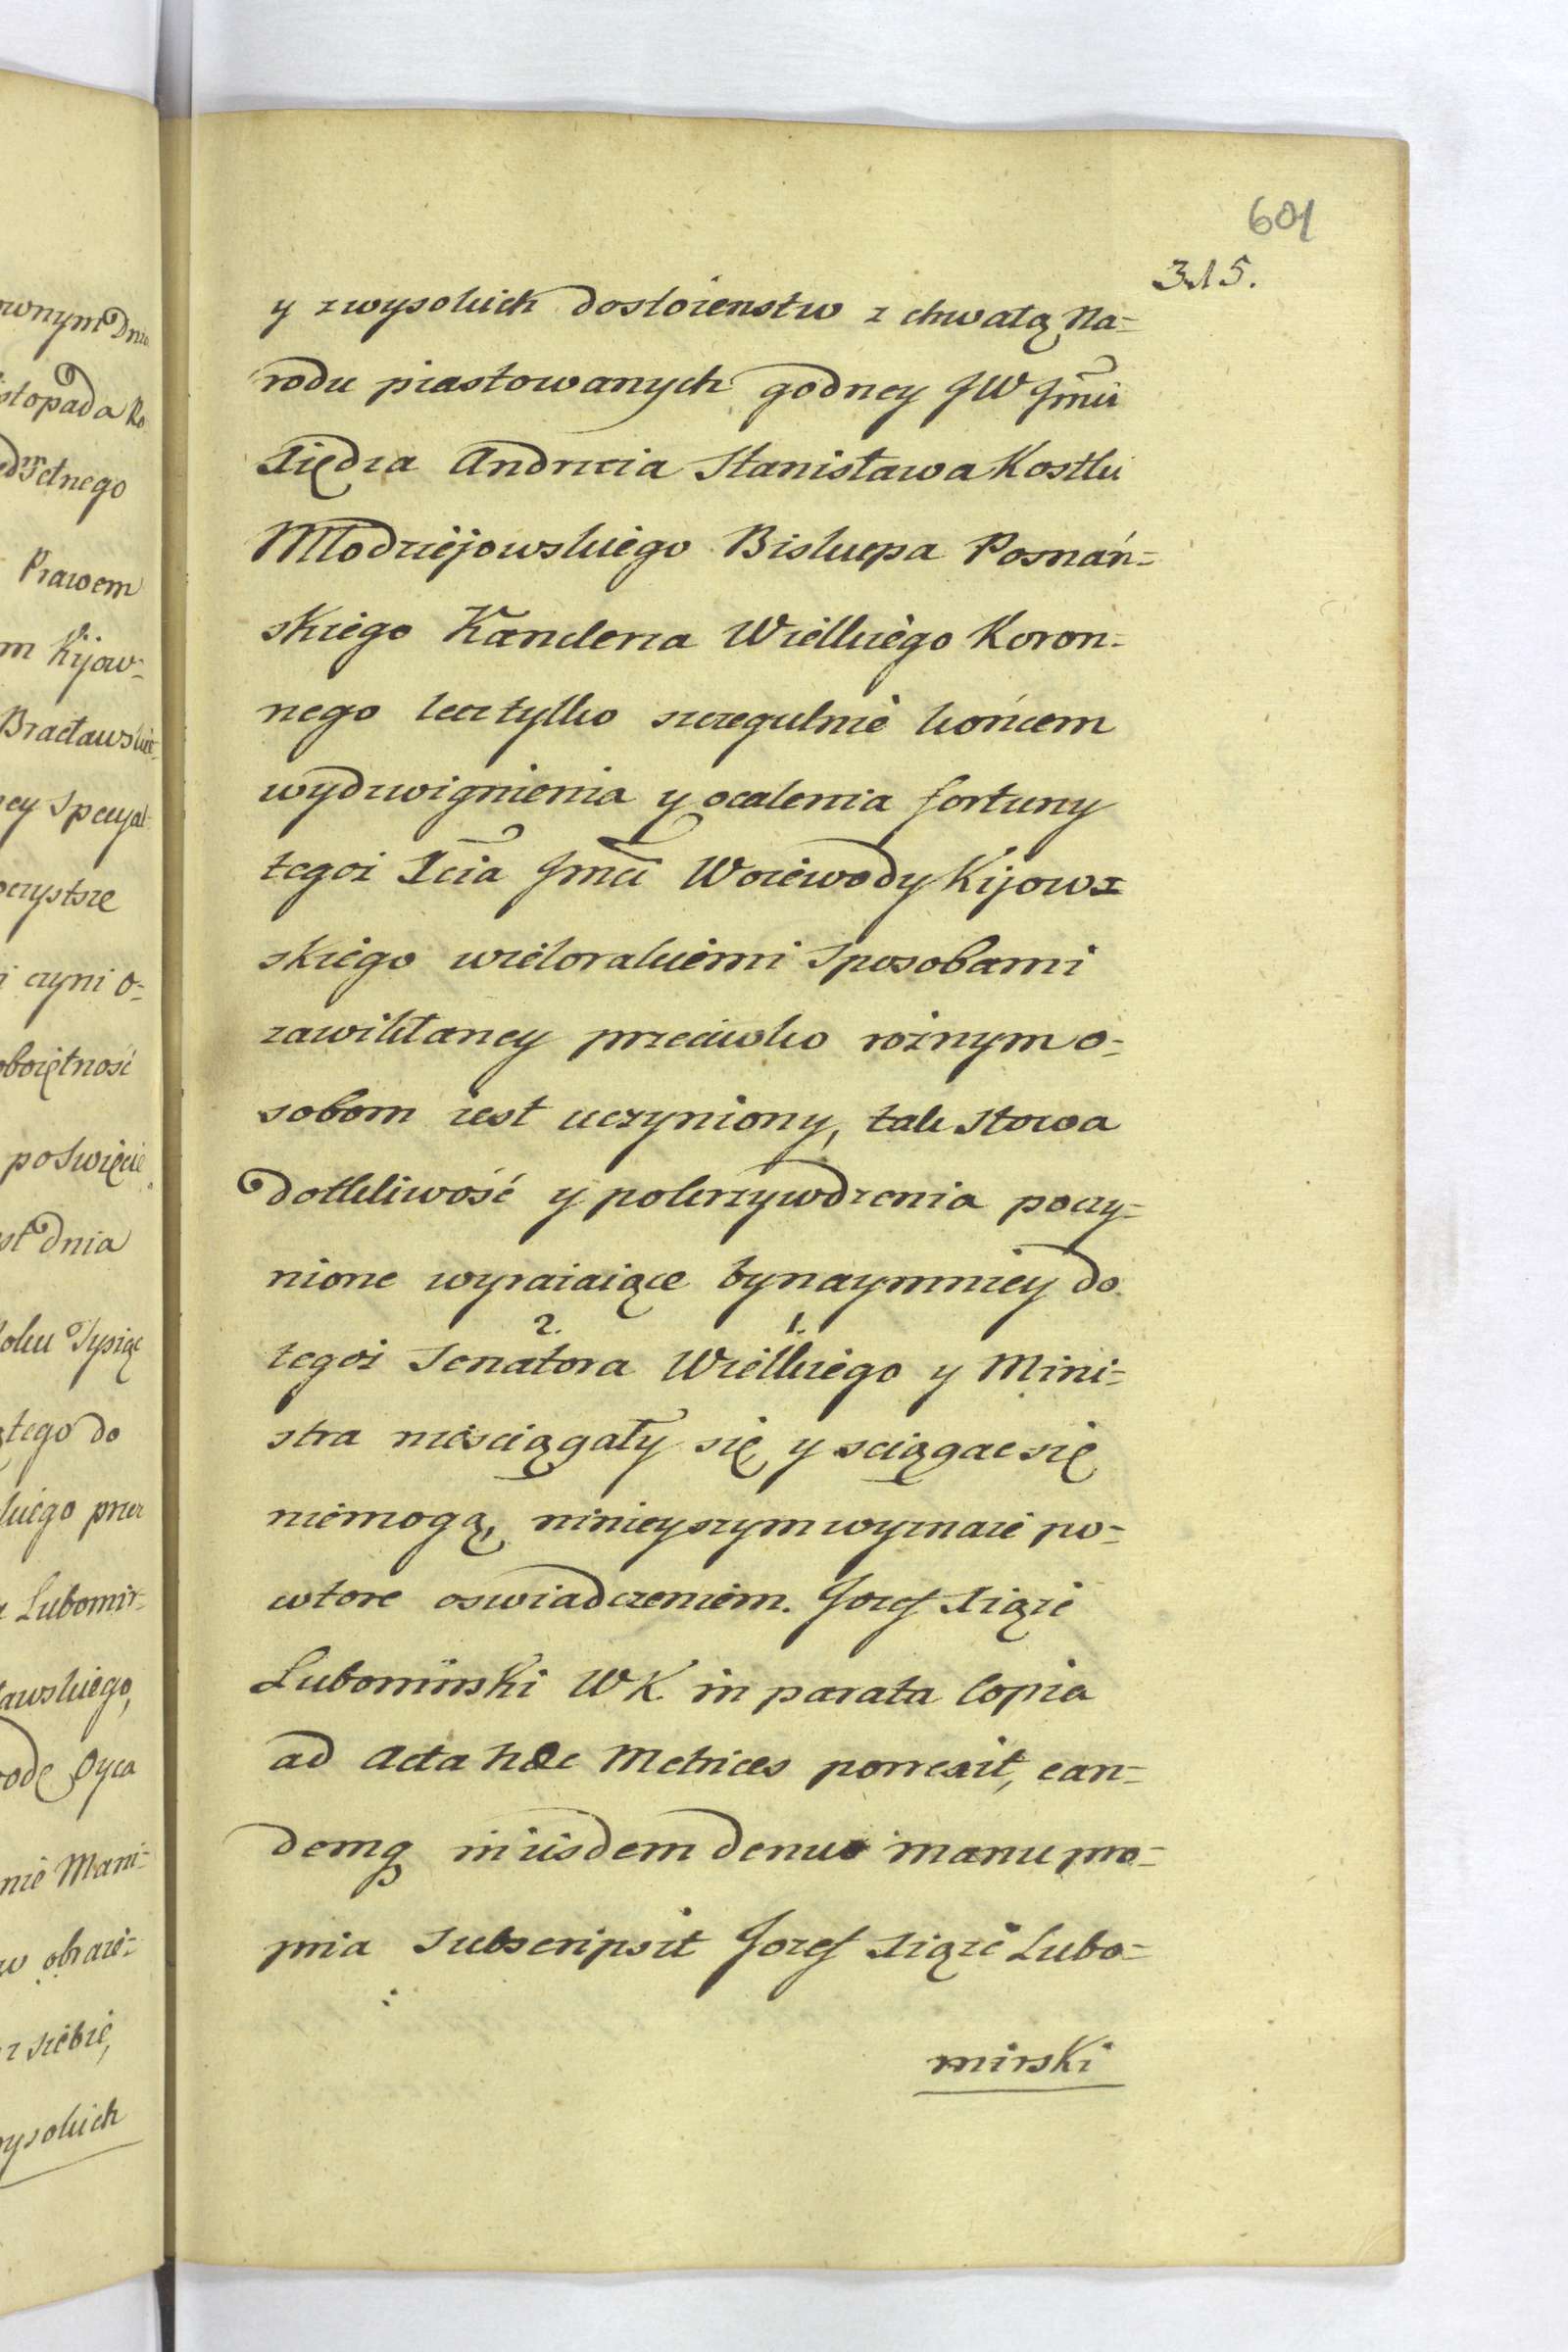 601
315.
y z wysokich dostoienstw z chwałą Na=
rodu piastowanych godney JW Jmci
Xiędza Andrzeia Stanisława Kostki
Młodziejowskiego Biskupa Poznań=
skiego Kanclerza Wielkiego Koron=
nego lecz tylko szczegulnie końcem
wydzwignienia y ocalenia fortuny
tegoż Xcia Jmci Woiewody Kijow=
skiego wielorakiemi Sposobami
zawikłaney przeciwko rożnym o=
sobom iest uczyniony, tak słowa
dotkliwość y pokrzywdzenia poczy=
nione wyrażaiące bynaymniey do
2. 1.
tegoż Senatora Wielkiego y Mini=
stra niesciągały się y sciągac się
niemogą, ninieyszym wyznaie po=
wtore oswiadczeniem. Jozef Xiąże
Lubomirski WK. in parata Copia
ad Acta hæc Metrices porrexit, ean=
demq. in iisdem denuo manu pro=
pria Subscripsit Jozef Xiąże Lubo=
mirski
ownym Dniu
istopada Ro
Prawem
m Kijow=
Bracławskie=
ey Specyal
oczystsze
i czyni o=
oboiętność
poświęcie
st dnia
Roku Tysiąc
ątego do
kiego przez
Lubomir=
ławskiego,
ode Oyca
nie Mani=
w obrazie=
z siebie,
wysokich